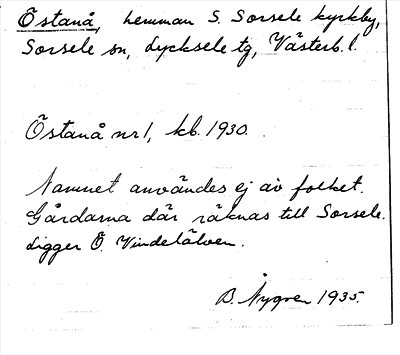 Östanå, hemman S. Sorsele kyrkby,
Sorsele sn, Lycksele tg, Västerb. l.
Östanå nr 1, kb. 1930.
Namnet användes ej av folket.
Gårdarna där räknas till Sorsele.
Ligger Ö. Vindelälven.
B. Nygren 1935.